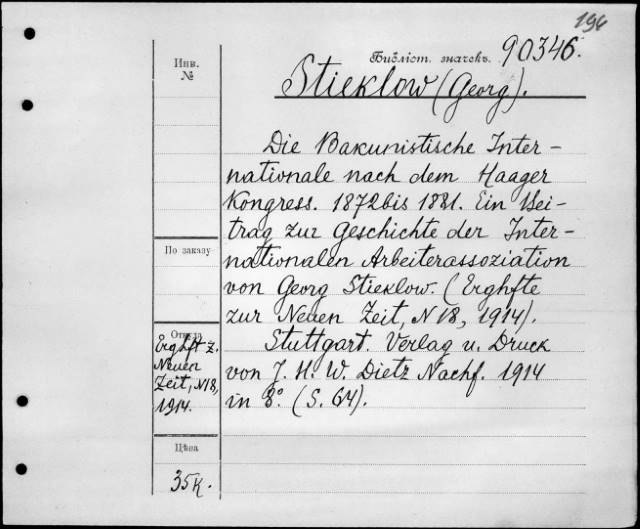 196
Инв.
№
Библіот. значекъ. 90346.
Stieklow (Georg).
Die Bakunistische Inter-
nationale nach dem Haager
Kongress. 1872 bis 1881. Ein Bei-
trag zur Geschichte der Inter-
nationalen Arbeiterassoziation
von Georg Stieklow. (Erghfte
zur Neuen Zeit, N 18, 1914).
Stuttgart. Verlag u. Druck
von J. H. W. Dietz Nachf. 1914
in 8º. (S. 64).
По заказу
Откуда
Erghft z.
Neuen
Zeit, N18,
1914.
Цѣна
35к.